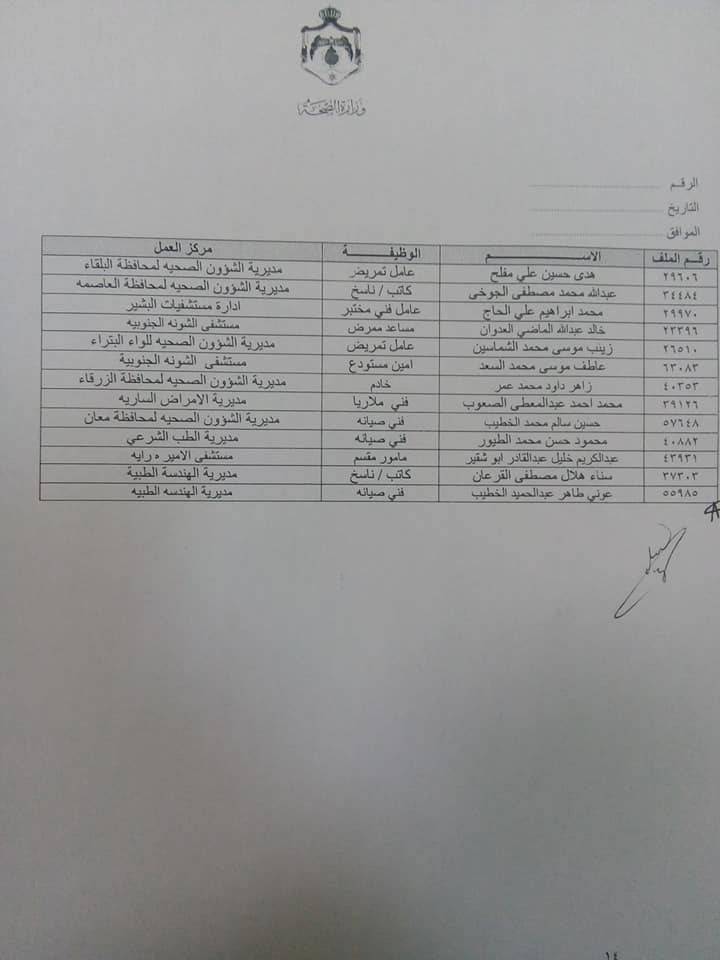 وزارة الصحة
الرقم
التاريخ
الموافق
رقم الملف الاســـــم الوظيفـــة مركز العمل
٢٩٦٠٦ هدى حسين علي مفلح عامل تمريض مديرية الشؤون الصحيه لمحافظة البلقاء
٣٤٤٨٤ عبدالله محمد مصطفى الجوخى كاتب / ناسخ مديرية الشؤون الصحيه لمحافظة العاصمه
٢٩٩٧٠ محمد ابراهيم علي الحاج عامل فني مختبر ادارة مستشفيات البشير
٢٣٣٩٦ خالد عبدالله الماضي العدوان مساعد ممرض مستشفى الشونه الجنوبيه
٢٦٥١٠ زينب موسى محمد الشماسين عامل تمريض مديرية الشؤون الصحيه للواء البتراء
٦٣٠٨٣ عاطف موسى محمد السعد امين مستودع مستشفى الشونه الجنوبية
٤٠٣٥٣ زاهر داود محمد عمر خادم مديرية الشؤون الصحيه لمحافظة الزرقاء
٣٩١٢٦ محمد احمد عبدالمعطى الصعوب فني ملاريا مديرية الامراض الساريه
٥٧٦٤٨ حسين سالم محمد الخطيب فني صيانه مديرية الشؤون الصحيه لمحافظة معان
٤٠٨٨٢ محمود حسن محمد الطيور فني صيانه مديرية الطب الشرعي
٤٣٩٣١ عبدالكريم خليل عبدالقادر ابو شقير مامور مقسم مستشفى الامير ه رايه
٣٧٣٠٣ سناء هلال مصطفى القرعان كاتب / ناسخ مديرية الهندسة الطبية
٥٥٩٨٥ عوني طاهر عبدالحميد الخطيب فني صيانه مديرية الهندسه الطبيه
١٤